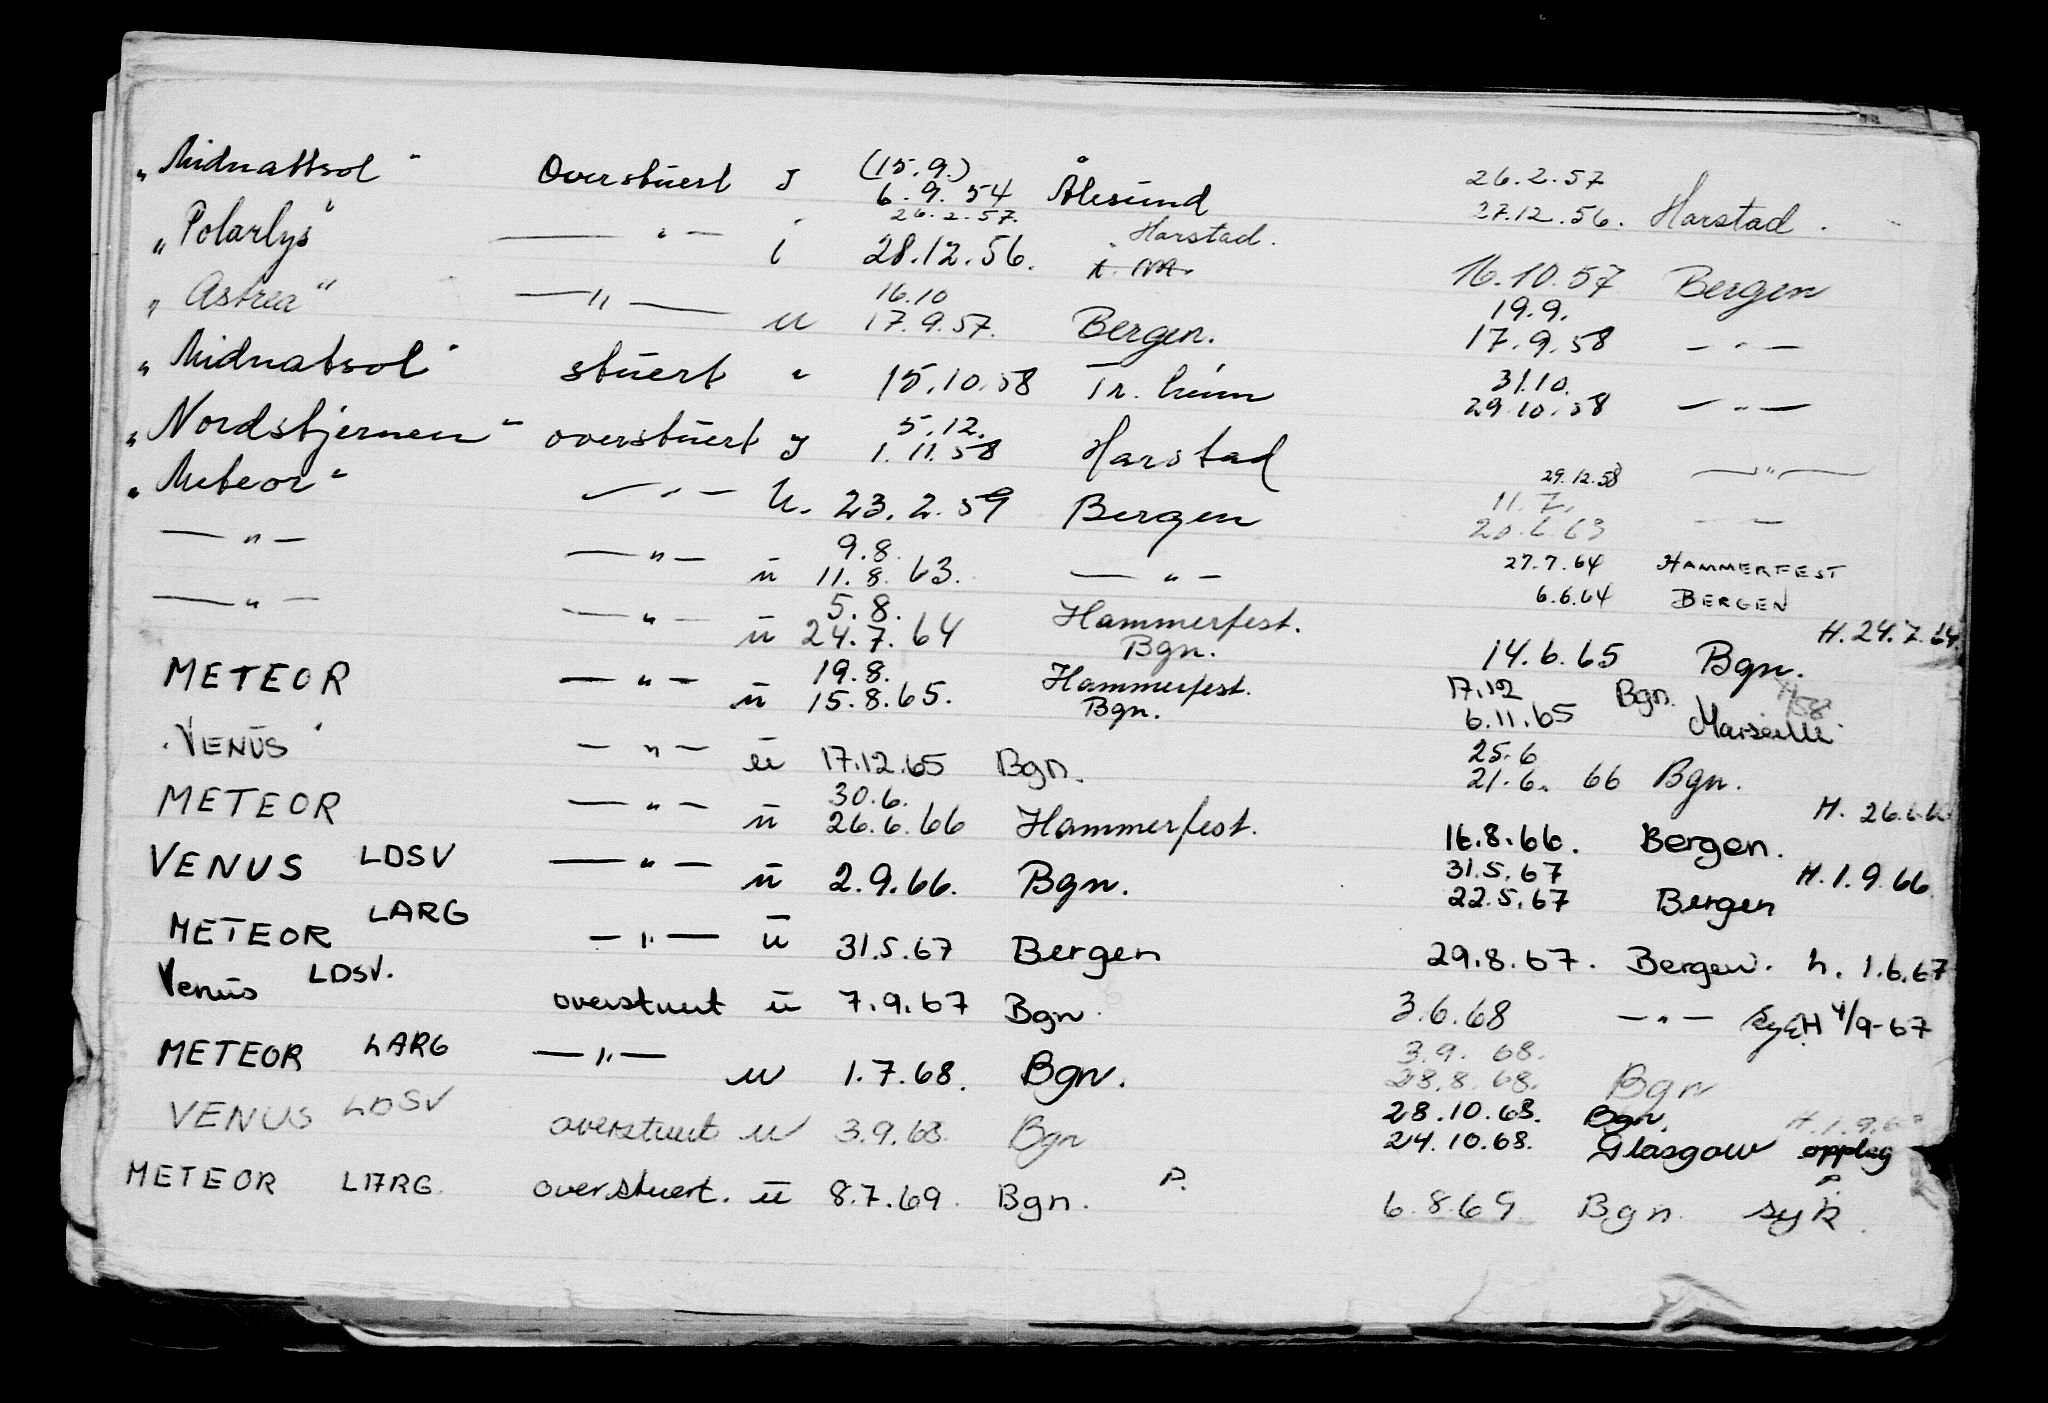 "Midnattsol" Overstuert I (15.9.) 6.9.54 Ålesund 26.2.57 27.12.56. Harstad.
"Polarlys" — " — i 26.2.57. 28.12.56. Harstad. 16.10.57 Bergen
"Astrea" — " — u 16.10 17.9.57. Bergen. 19.9. 17.9.58 — " —
"Midnatsol" stuert " 15.10.58 Tr.heim 31.10. 29.10.58 — " —
"Nordstjernen" overstuert I 5.12. 1.11.58 Harstad 29.12.58 — " —
"Meteor" — " — u. 23.2.59 Bergen 11.7. 20.6.63 — " —
— " — — " — u 9.8. 11.8.63. — " — 27.7.64 HAMMERFEST 6.6.64 BERGEN
— " — — " — u 5.8. 24.7.64 Hammerfest. Bgn. 14.6.65 Bgn. H. 24.7.64.
METEOR — " — u 19.8. 15.8.65. Hammerfest. Bgn. 17.12 Bgn. 6.11.65 Marseille
"VENUS" — " — u 17.12.65 Bgn. 25.6 21.6. 66 Bgn.
METEOR — " — u 30.6. 26.6.66 Hammerfest. 16.8.66. Bergen. H. 26.6.66
VENUS LDSV — " — u 2.9.66. Bgn. 31.5.67 22.5.67 Bergen H. 1.9.66
METEOR LARG — " — u 31.5.67 Bergen 29.8.67. Bergen. h. 1.6.67
Venus LDSV. overstuert u 7.9.67 Bgn. 3.6.68 — " — Syk. H 4/9-67
METEOR LARG — " — u 1.7.68. Bgn. 3.9. 68. 28.8.68. Bgn
VENUS LDSV overstuert u 3.9.68. Bgn 28.10.68. Bgn. 24.10.68. Glasgow opplag H. 1.9.68
METEOR LARG. overstuert. u 8.7.69. Bgn. P. 6.8.69 Bgn. syk.